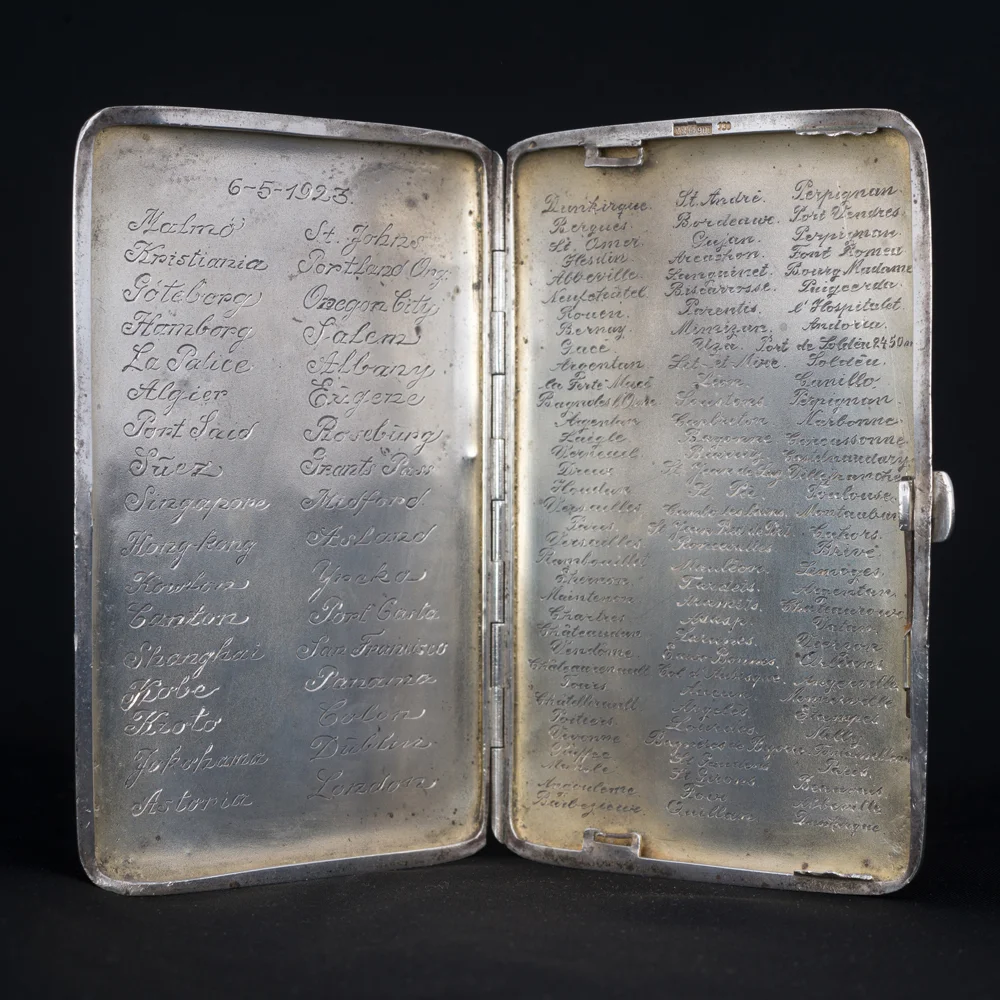 6-5-1923.
Malmö
Kristiania
Göteborg
Hamborg
La Palice
Algier
Port Said
Suez
Singapore
Hong-kong
Kowlon
Canton
Shanghai
Kobe
Kioto
Jokohama
Astoria
St. Johns
Portland Org.
Oregon City
Salem
Albany
Eugene
Roseburg
Grants Pass
Midford
Asland
Yreka
Port Costa
San Francisco
Panama
Colon
Dublin
London
Dunkirque
Bergues
St. Omer
Hesdin
Abbeville
Neufchâtel
Rouen
Bernay
Gacé
Argentan
la Ferté Macé
Argentan
Laigle
Verneuil
Dreux
Houdan
Versailles
Paris
Versailles
Rambouillet
Epernon
Maintenon
Chartres
Châteaudun
Vendome
Châteaurenault
Tours
Châtellerault
Poitiers
Vivonne
Ruffec
Mansle
Angouleme
Barbezieux
St. André.
Bordeaux.
Gujan.
Arcachon.
Sanguinet.
Biscarrosse.
Parentis.
Mimizan.
Uza.
Lit et Mixe.
Léon.
Soustons.
Capbreton
Bayonne
Biarritz
St. Jean de Luz
St. Pée.
Cambo les bains.
St. Jean Pied de Port
Roncevalles
Mauléon.
Tardets.
Aramits.
Arudy.
Laruns.
Eaux Bonnes.
Col d'Aubisque.
Arcen
Argelès
Lourdes.
Bagnères de Bigorre
St. Gaudens
St. Girons
Foix
Quillan
Perpignan.
Port Vendres
Perpignan.
Font Romeu
Bourg Madame
Puigcerda.
l'Hospitalet
Andorra.
Port de Soldeu 2450m
Soldeu.
Canillo.
Perpignan.
Narbonne.
Carcassonne
Castelnaudary
Villefranche
Toulouse.
Montauban
Cahors.
Brive.
Limoges.
Argentan.
Châteauroux
Vatan.
Vierzon
Orléans
Angerville.
Etampes
Paris.
Beauvais
Abbeville
Dunkirque